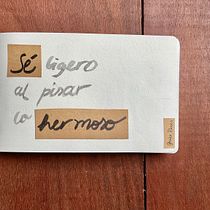 Sé ligero
al pisar
lo hermoso